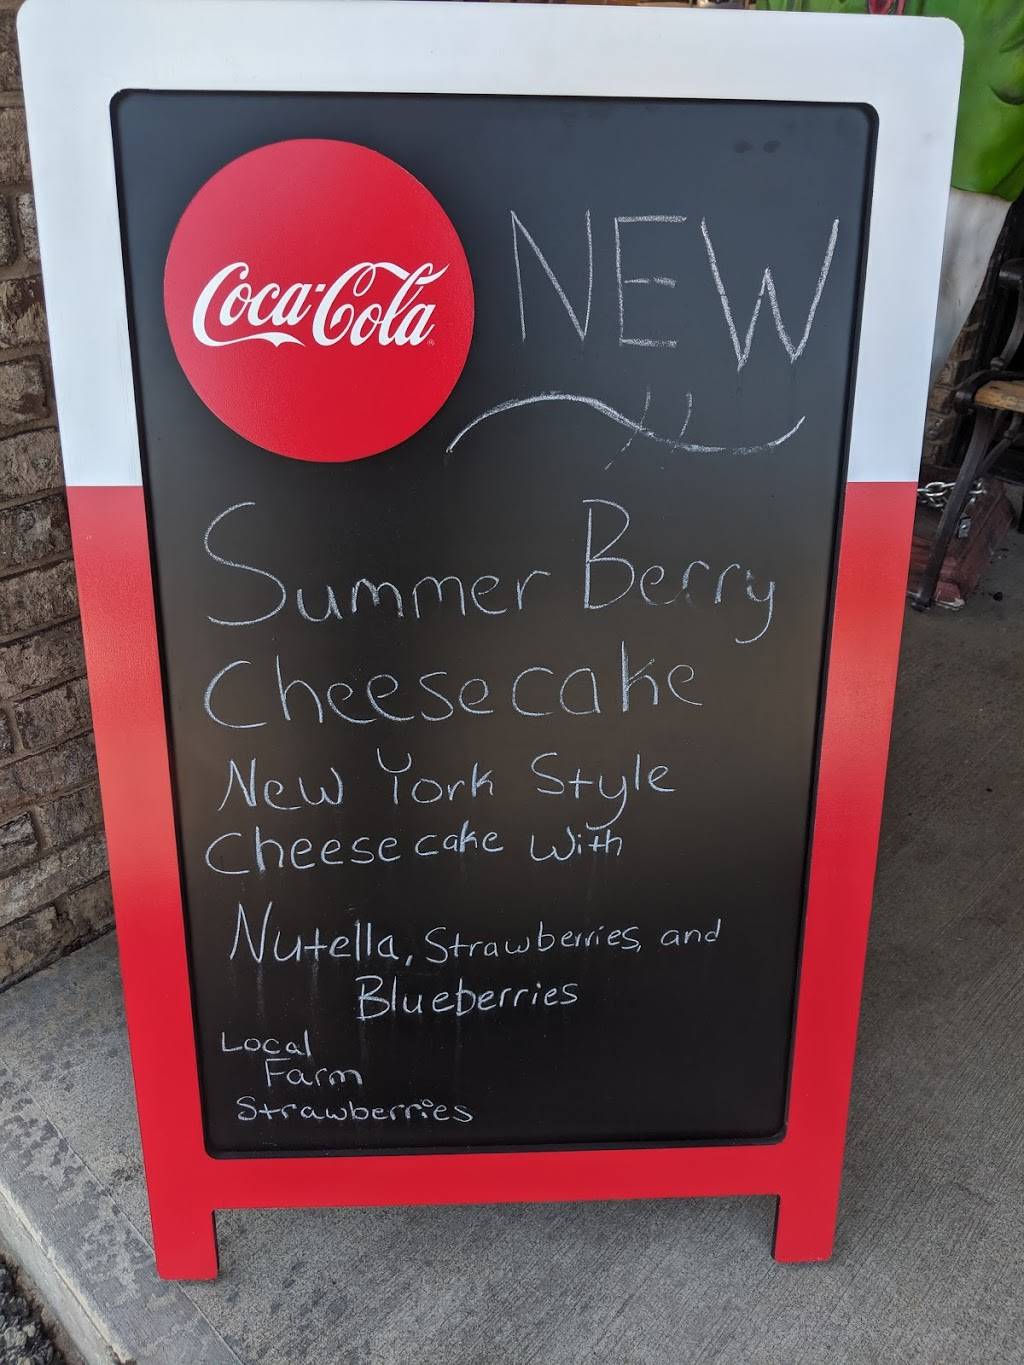 Coca-Cola
NEW
Summer Berry
Cheesecake
New York Style
Cheesecake with
Nutella, Strawberries, and
Blueberries
Local
Farm
Strawberries